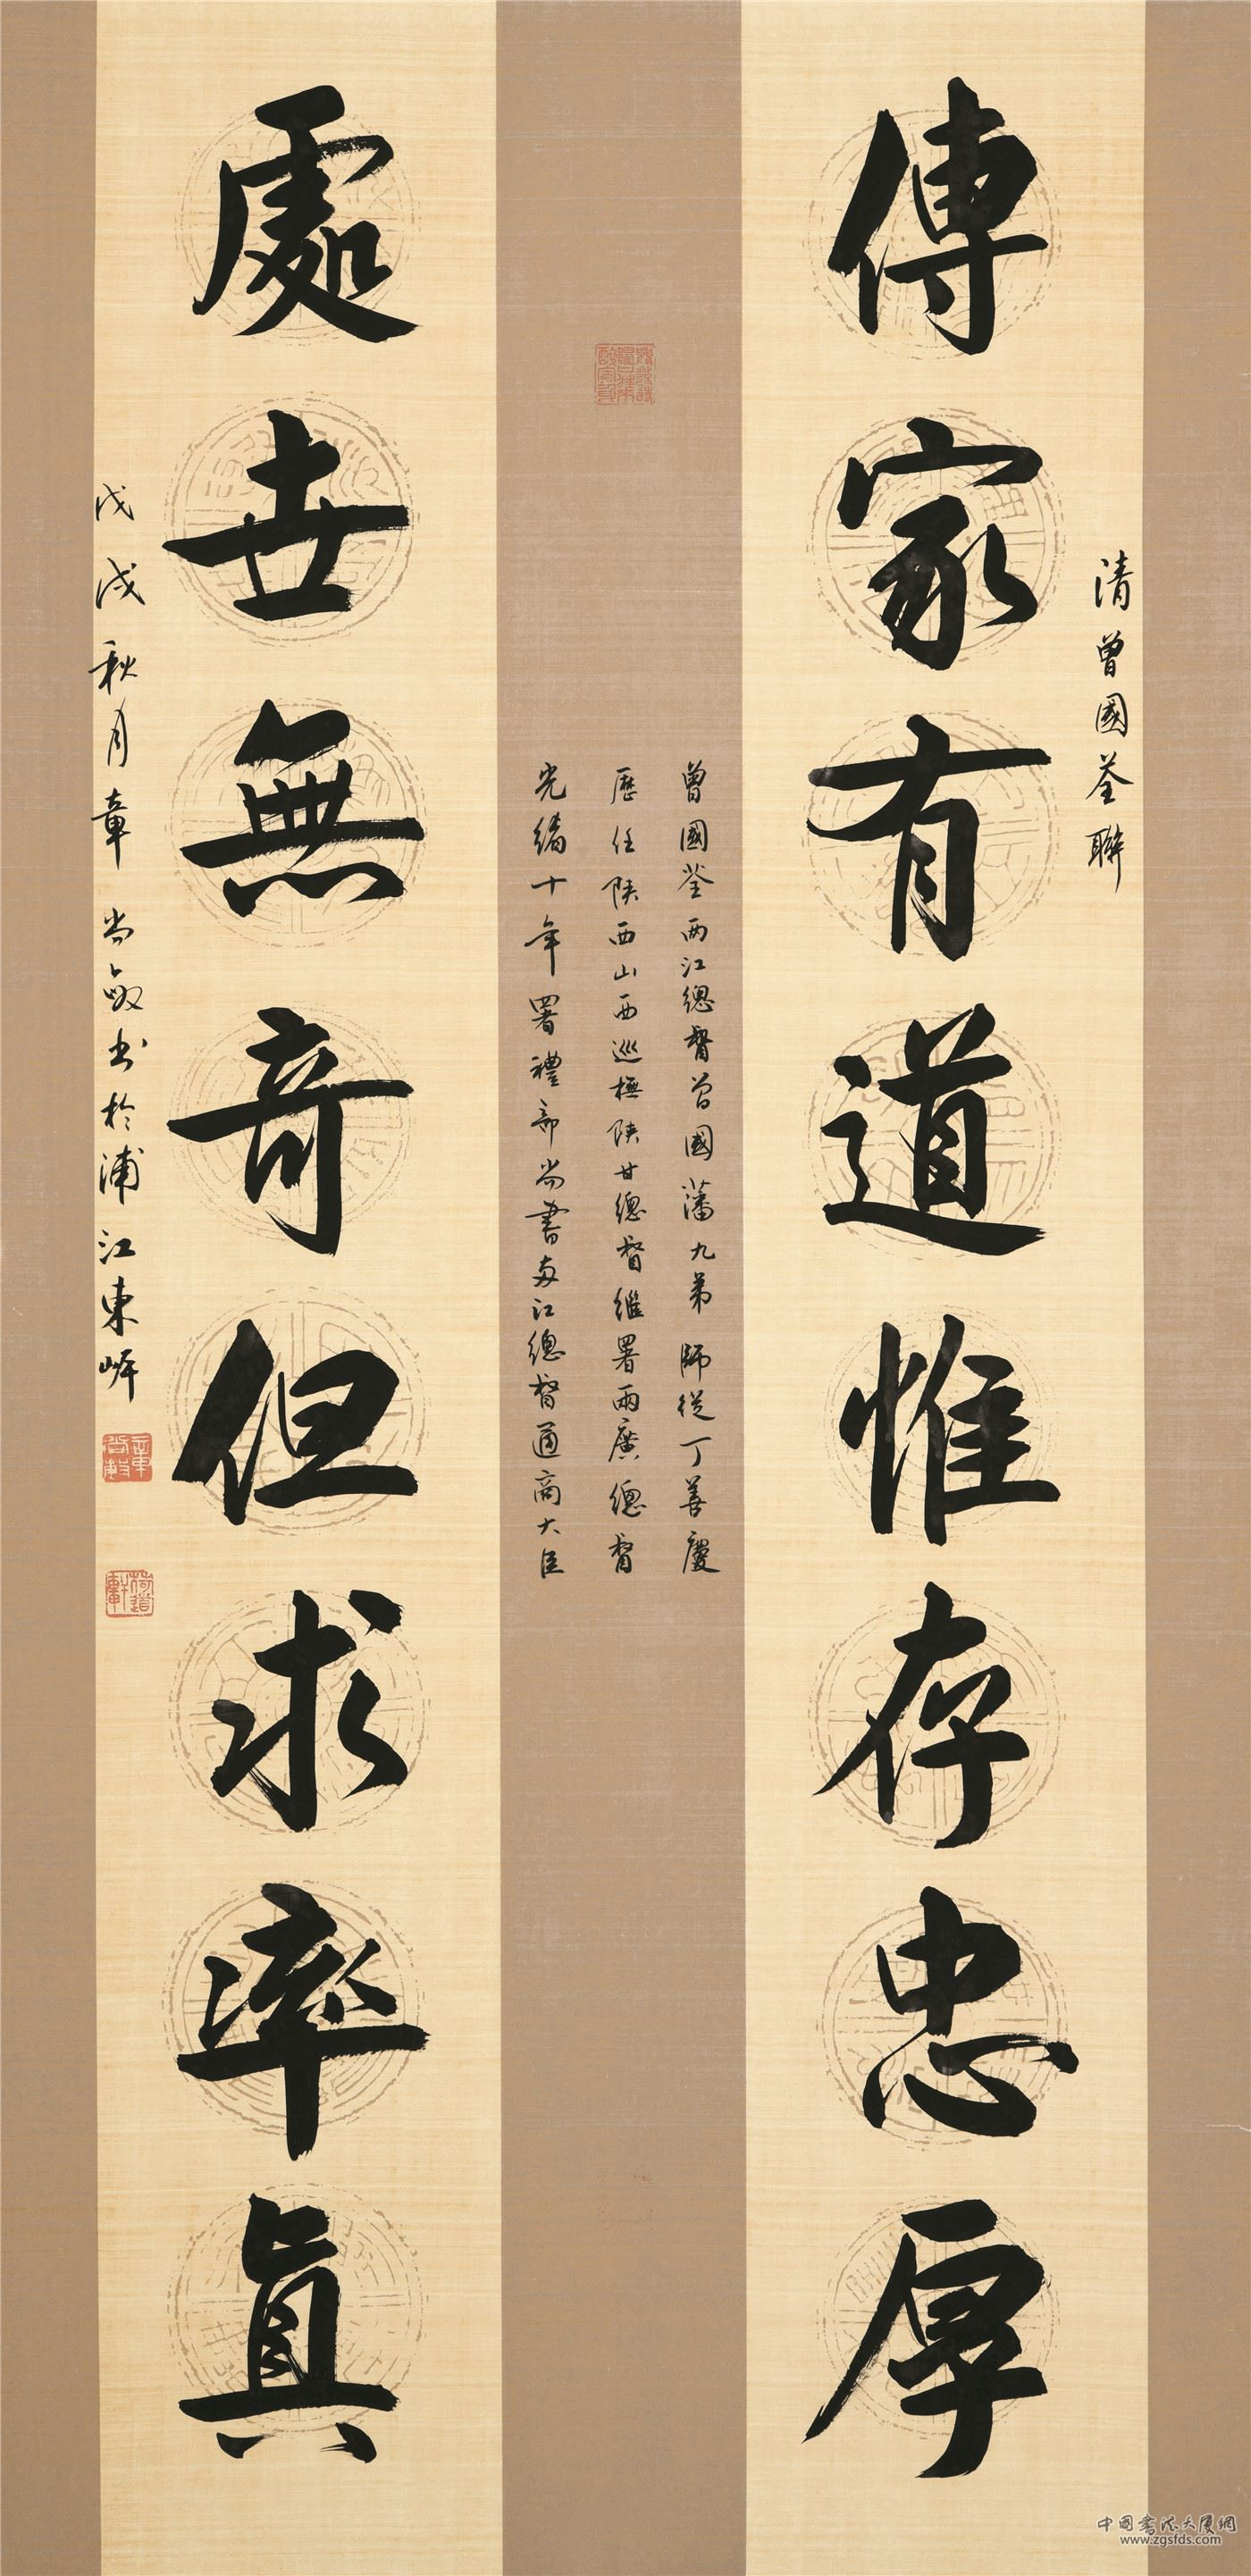 清曾國荃聯
傳家有道惟存忠厚
曾國荃兩江總督曾國藩九弟師從丁善慶
歷任陝西山西巡撫陝甘總督繼署兩廣總督
光緒十年署禮部尚書兩江總督通商大臣
處世無奇但求率真
戊戌秋月章尚敏书於浦江東岸
中国書法大厦網
www.zgsfds.com